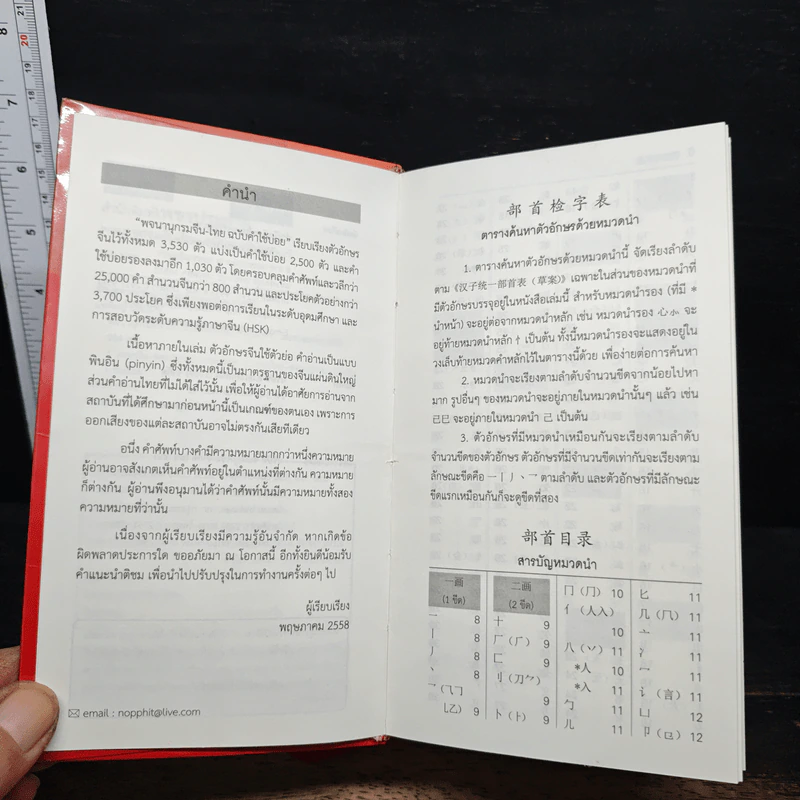 คำนำ
"พจนานุกรมจีน-ไทย ฉบับคำใช้บ่อย" เรียบเรียงตัวอักษร
จีนไว้ทั้งหมด 3,530 ตัว แบ่งเป็นคำใช้บ่อย 2,500 ตัว และคำ
ใช้บ่อยรองลงมาอีก 1,030 ตัว โดยครอบคลุมคำศัพท์และวลีกว่า
25,000 คำ สำนวนจีนกว่า 800 สำนวน และประโยคตัวอย่างกว่า
3,700 ประโยค ซึ่งเพียงพอต่อการเรียนในระดับอุดมศึกษา และ
การสอบวัดระดับความรู้ภาษาจีน (HSK)
เนื้อหาภายในเล่ม ตัวอักษรจีนใช้ตัวย่อ คำอ่านเป็นแบบ
พินอิน (pinyin) ซึ่งทั้งหมดนี้เป็นมาตรฐานของจีนแผ่นดินใหญ่
ส่วนคำอ่านไทยที่ไม่ได้ใส่ไว้นั้น เพื่อให้ผู้อ่านได้อาศัยการอ่านจาก
สถาบันที่ได้ศึกษามาก่อนหน้านี้เป็นเกณฑ์ของตนเอง เพราะการ
ออกเสียงของแต่ละสถาบันอาจไม่ตรงกันเสียทีเดียว
อนึ่ง คำศัพท์บางคำมีความหมายมากกว่าหนึ่งความหมาย
ผู้อ่านอาจสังเกตเห็นคำศัพท์อยู่ในตำแหน่งที่ต่างกัน ความหมาย
ก็ต่างกัน ผู้อ่านพึงอนุมานได้ว่าคำศัพท์นั้นมีความหมายทั้งสอง
ความหมายที่ว่านั้น
เนื่องจากผู้เรียบเรียงมีความรู้อันจำกัด หากเกิดข้อ
ผิดพลาดประการใด ขออภัยมา ณ โอกาสนี้ อีกทั้งยินดีน้อมรับ
คำแนะนำติชม เพื่อนำไปปรับปรุงในการทำงานครั้งต่อๆ ไป
ผู้เรียบเรียง
พฤษภาคม 2558
email : nopphit@live.com
部首检字表
ตารางค้นหาตัวอักษรด้วยหมวดนำ
1. ตารางค้นหาตัวอักษรด้วยหมวดนำนี้ จัดเรียงลำดับ
ตาม《汉字统一部首表（草案）》เฉพาะในส่วนของหมวดนำที่
มีตัวอักษรบรรจุอยู่ในหนังสือเล่มนี้ สำหรับหมวดนำรอง (ที่มี *
นำหน้า) จะอยู่ต่อจากหมวดนำหลัก เช่น หมวดนำรอง 心⺗ จะ
อยู่ท้ายหมวดนำหลัก忄เป็นต้น ทั้งนี้หมวดนำรองจะแสดงอยู่ใน
วงเล็บท้ายหมวดคำหลักไว้ในตารางนี้ด้วย เพื่อง่ายต่อการค้นหา
2. หมวดนำจะเรียงตามลำดับจำนวนขีดจากน้อยไปหา
มาก รูปอื่นๆ ของหมวดนำจะอยู่ภายในหมวดนำนั้นๆ แล้ว เช่น
已巳 จะอยู่ภายในหมวดนำ 己 เป็นต้น
3. ตัวอักษรที่มีหมวดนำเหมือนกันจะเรียงตามลำดับ
จำนวนขีดของตัวอักษร ตัวอักษรที่มีจำนวนขีดเท่ากันจะเรียงตาม
ลักษณะขีดคือ 一丨丿丶乛 ตามลำดับ และตัวอักษรที่มีลักษณะ
ขีดแรกเหมือนกันก็จะดูขีดที่สอง
部首目录
สารบัญหมวดนำ
一画
(1 ขีด)
一 8
丨 8
丿 8
丶 9
乛（⺄㇆
乚乙） 9
二画
(2 ขีด)
十 9
厂（⺁） 9
匚 9
刂（刀⺈）
9
卜（⺊） 9
冂（⺆） 10
亻（人入）
10
八（丷） 11
*人 10
*入 11
勹 11
儿 11
匕 11
几（⺇） 11
亠 11
冫 11
冖 11
讠（言） 11
凵 12
卩（㔾） 12